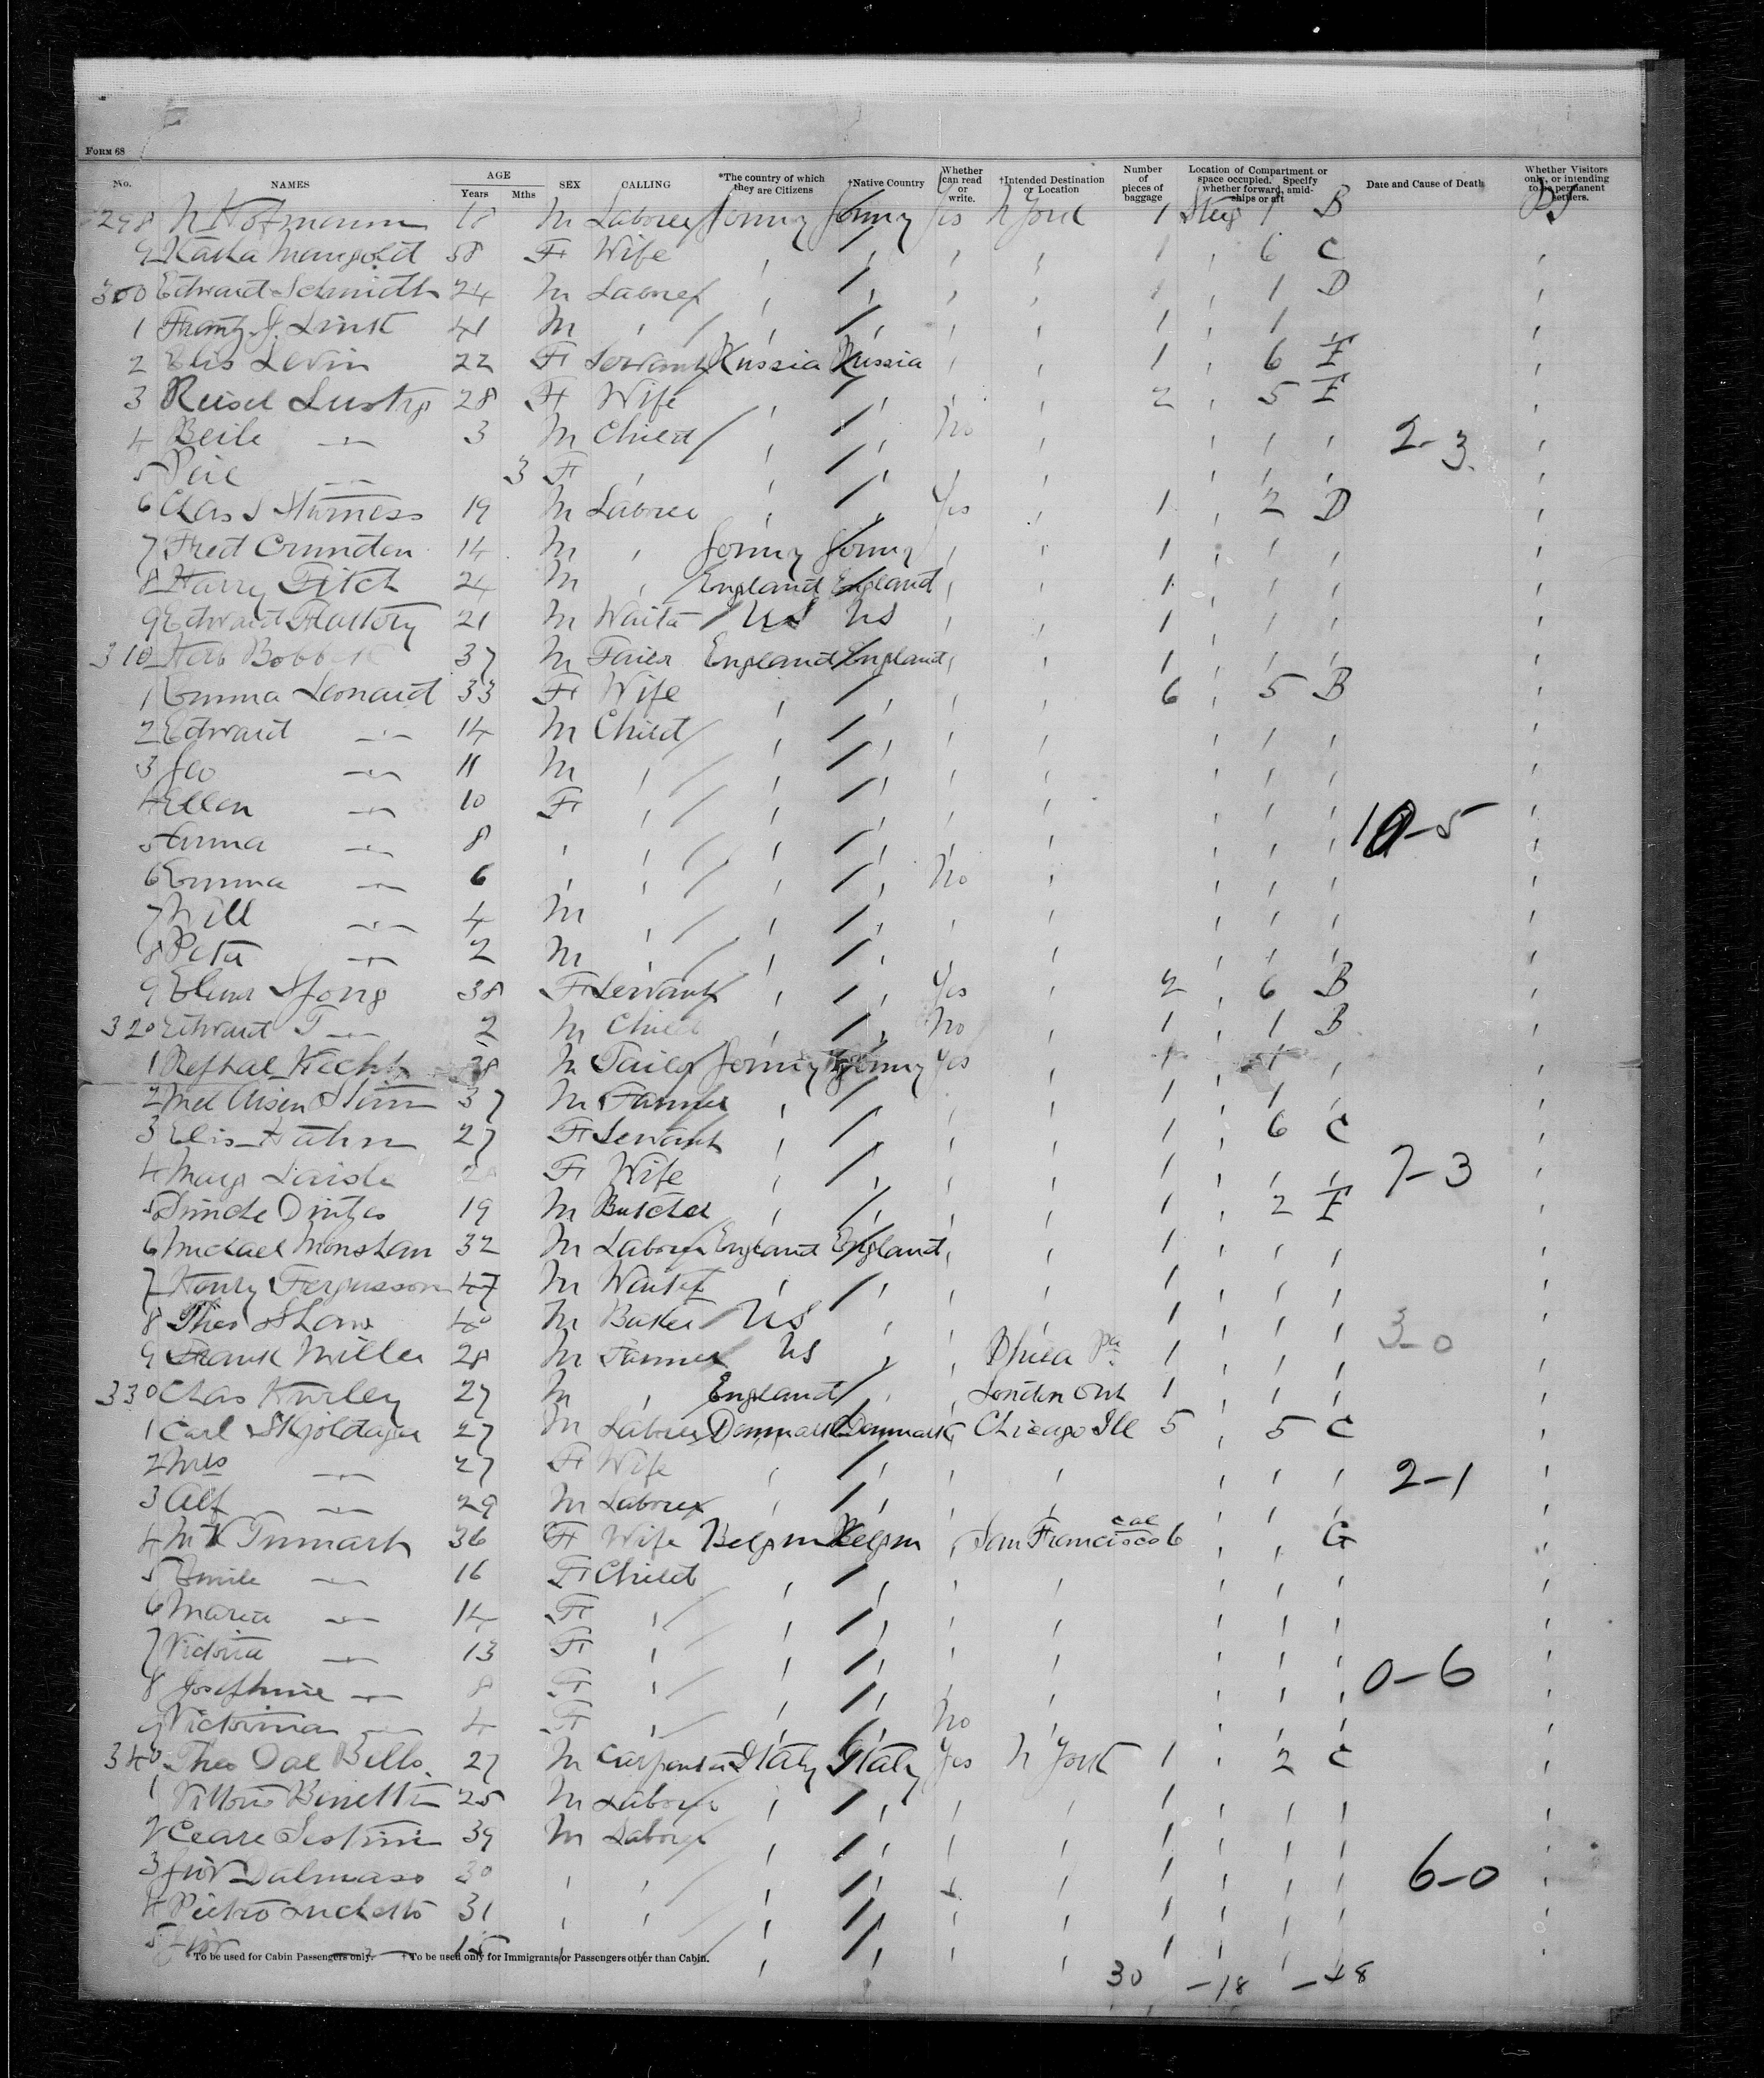 FORM 68
No. NAMES AGE Years Mths SEX CALLING *The country of which they are Citizens †Native Country Whether can read or write. †Intended Destination or Location Number of pieces of baggage Location of Compartment or space occupied. Specify whether forward, amidships or aft Date and Cause of Death Whether Visitors only, or intending to be permanent settlers.
298 N Hofmann 18 M Laborer Germy Germy Yes N York 1 Steg 1 B
9 Katha Mangold 58 F Wife 1 6 C
300 Edward Schmidth 24 M Laborer 1 1 D
1 Frantz J. Link 41 M 1
2 Elis Levin 22 F Servant Russia Russia 1 6 F
3 Reisel Lustig 28 F Wife 2 5 F
4 Beile 3 M Child No 2-3
5 3 F
6 Chas S Sturness 19 M Laborer Yes 1 2 D
7 Fred Crundten 14 M Germy Germy 1
8 Harry Fitch 24 M England England 1
9 Edward Flattery 21 M Waiter US US 1
310 Bobbett 37 M Tailor England England 1
1 Emma Leonard 33 F Wife 6 5 B
2 Edward 14 M Child
3 Geo 11 M
4 Ellen 10 F 10-5
5 Anna 8
6 Emma 6 No
7 Will 4 M
8 Peter 2 M
9 Spong 38 F Servant Yes 2 6 B
320 Edward T 2 M Child No 1 B
1 Neftal Hecht 38 M Tailor Germy Germy Yes 1
2 Mel Stern 37 M Farmer 1
3 Elis Hahn 27 F Servant 1 6 C
4 Mary F Wife 1 7-3
5 Simche Dintzes 19 M Butcher 1 2 F
6 Michael Monshan 32 M Laborer England England 1
7 Henry Fergusson 47 M Waiter 1
8 Theo Shaw 40 M Baker US 1 3-0
9 Frank Miller 28 M Farmer US Phila Pa 1
330 Chas Hurley 27 M England London Ont 1
1 Carl Skjoldager 27 M Laborer Denmark Denmark Chicago Ill 5 5 C
2 Mrs 27 F Wife 2-1
3 Alf 29 M Laborer
4 M K Tnmark 36 F Wife Belgm Belgm San Francisco Cal 6 G
5 Emile 16 F Child
6 Maria 14 F
7 Victoria 13 F
8 Josephine 8 F 0-6
9 Victorina 4 F No
340 Theo Dal Bello 27 M Carpenter Italy Italy Yes N York 1 2 C
1 Vittorio Binetti 25 M Laborer 1
2 Ceare Sestini 39 M Laborer 1
3 Giov Dalmaso 30 1 6-0
4 Pietro Luchetto 31 1
5 Giov 15 1
*To be used for Cabin Passengers only. †To be used only for Immigrants or Passengers other than Cabin.
30 -18 -48